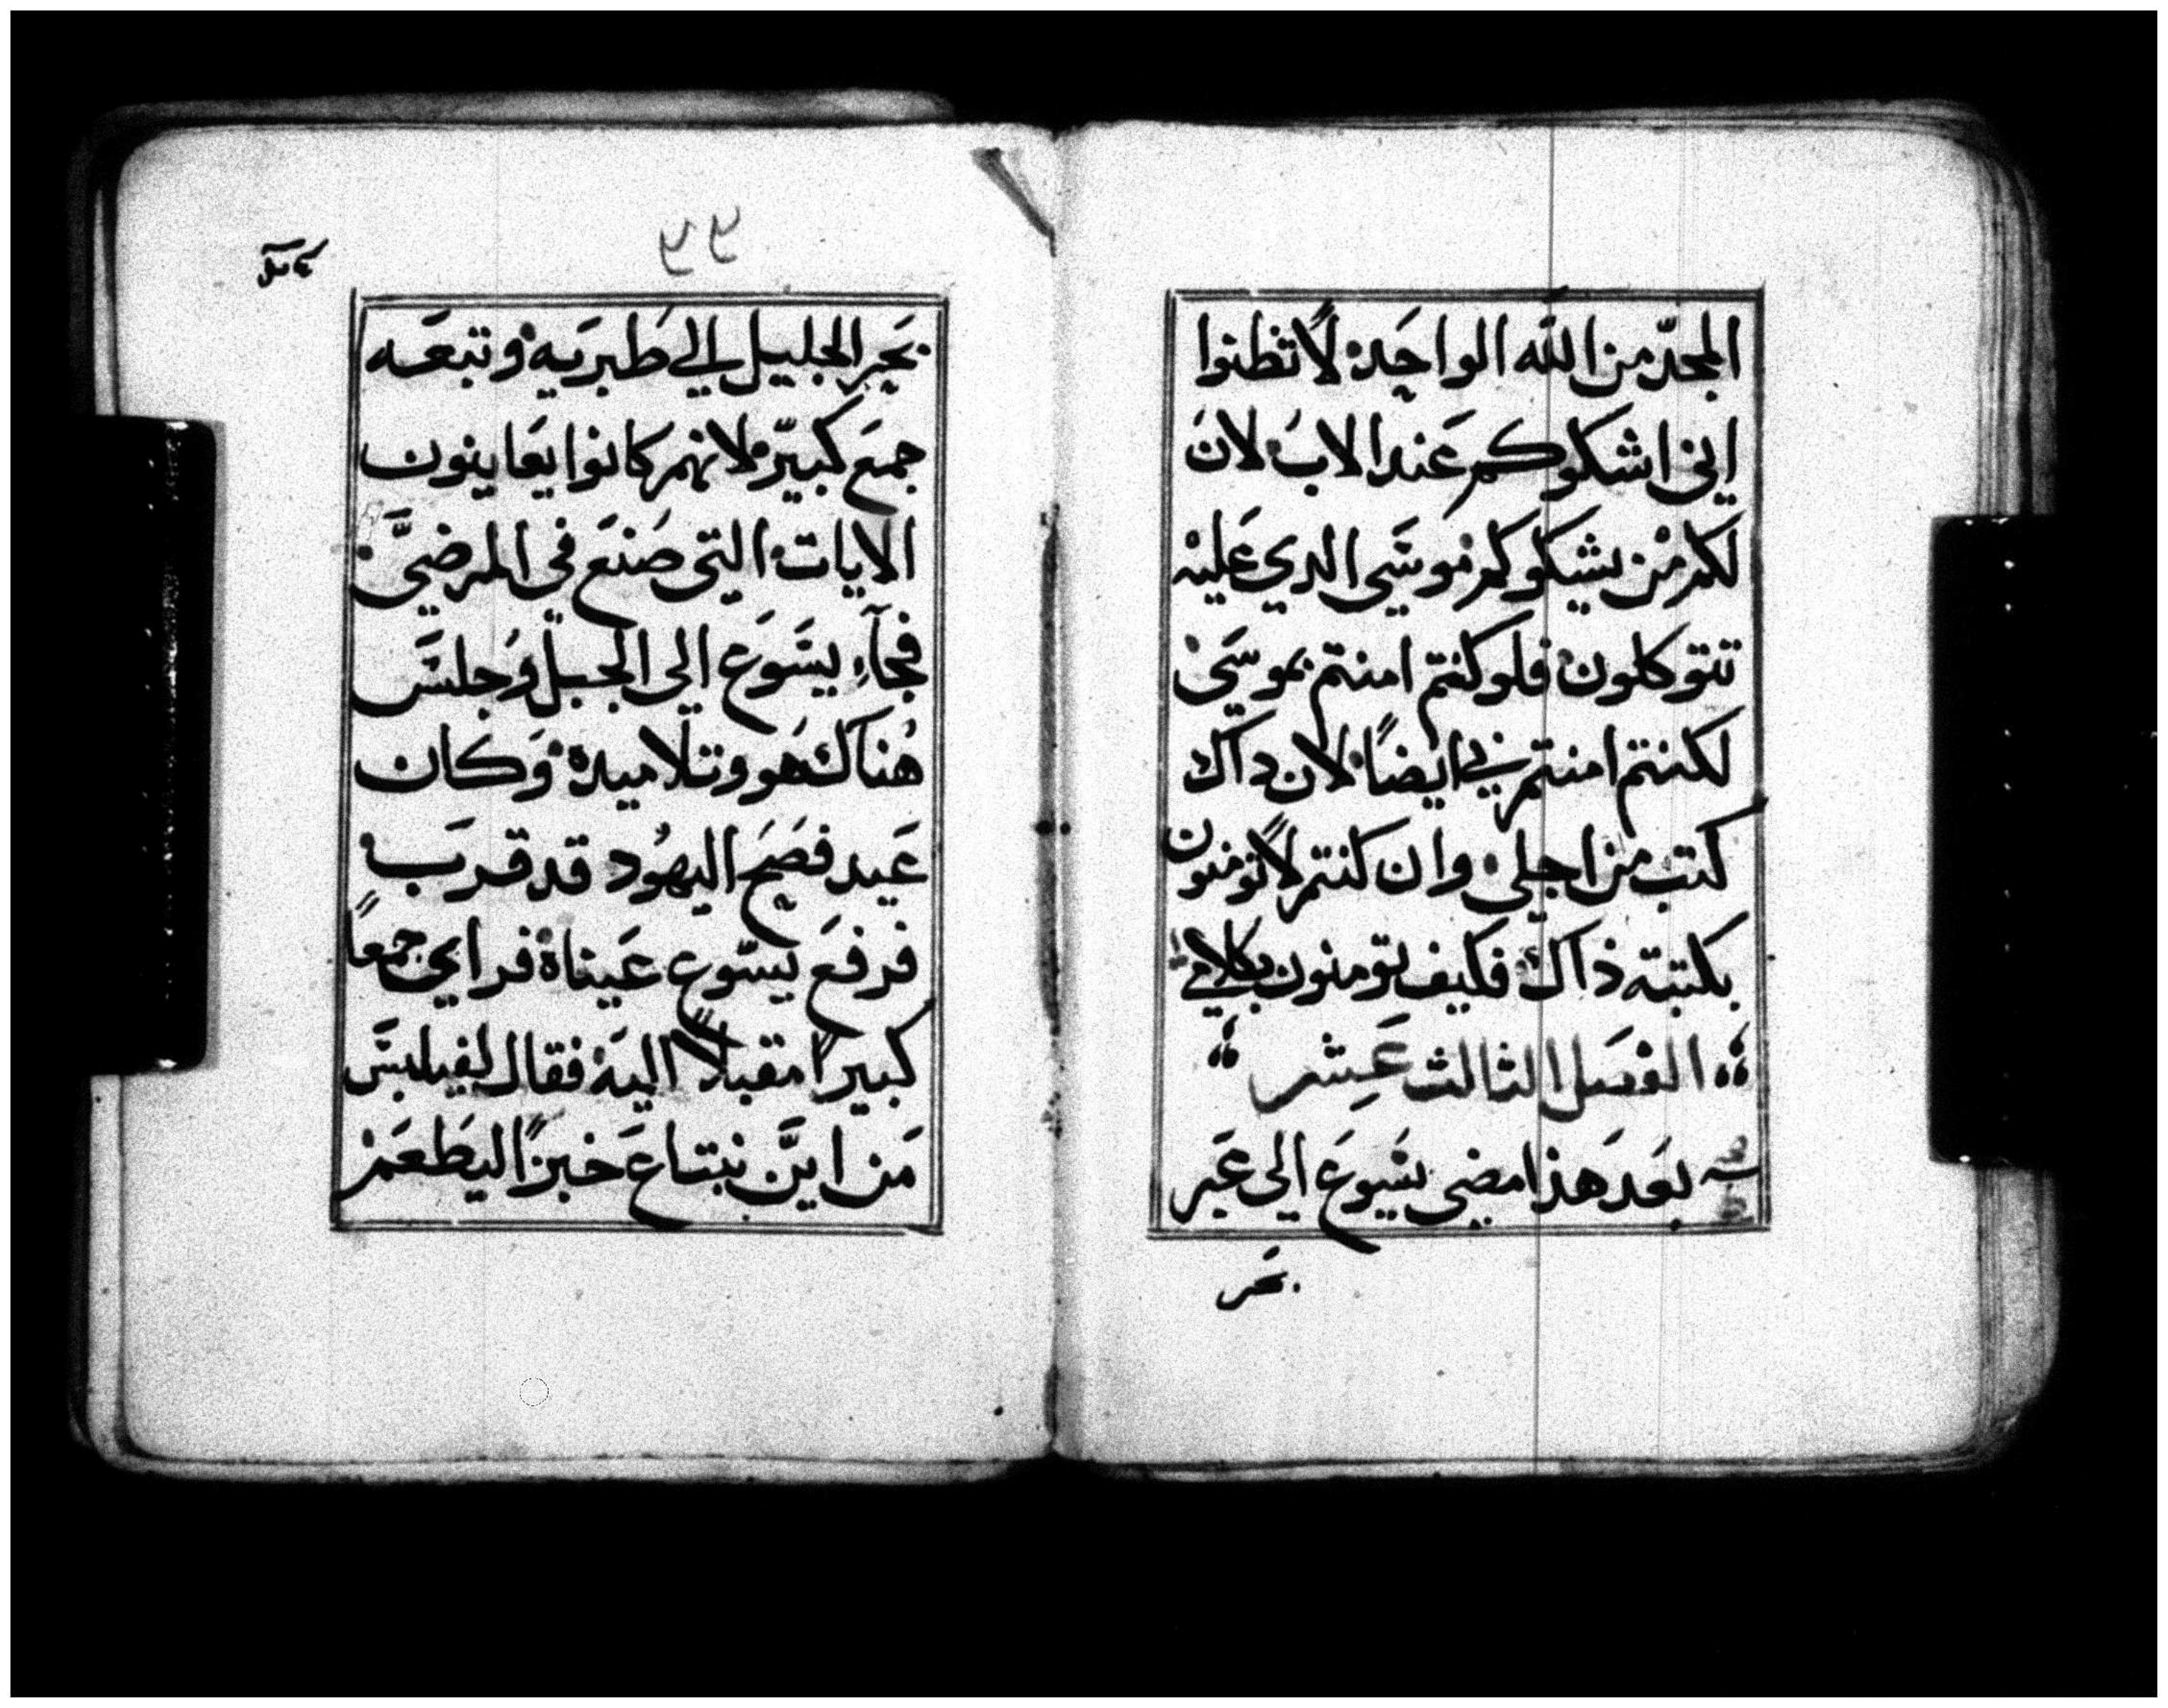 المجد من الله الواحد لا تظنوا
اني اشكوكم عند الاب لان
لكم من يشكوكم موسي الدي عليه
تتوكلون فلو كنتم امنتم بموسي
لكنتم امنتم بي ايضاً لان داك
كتب من اجلي وان كنتم لا تومنون
بكتبته ذاك فكيف تومنون بكلامي
الفصل الثالث عشر
بعد هذا مضي يسوع الي عبر
بحر
بحر الجليل الي طبريه وتبعه
جمع كبير لانهم كانوا يعاينون
الايات التي صنع في المرضي
فجآء يسوع الي الجبل وجلس
هناك هو وتلاميده وكان
عيد فصح اليهود قد قرب
فرفع يسوع عيناه فراي جمعاً
كبيراً مقبلاً اليه فقال لفيلبس
من اين نبتاع خبزاً ليطعم